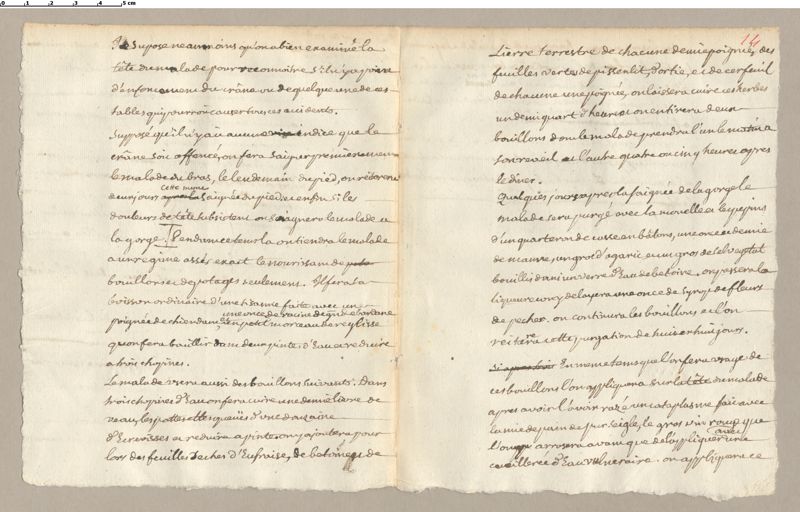 0 1 2 3 4 5 cm
Je supose neanmoins qu'on a bien examiné la
tête du malade pour reconnoitre s'il n'y a point
d'enfoncement du crâne ou de quelque une de ces
tables qui pourroit causer tous ces accidents.
Supposé qu'il n'y ait aucun indice que le
crâne soit offencé, on fera saigner premierement
le malade du bras, le lendemain du pied, on reiterera
cette même
un jour apres la saignée du pied, et enfin si les
douleurs de tête subsistent on saignera le malade a
la gorge. Pendant ce tems la on tiendra le malade
a un regime assés exact le nourissant de
bouillons et de potages seulement. Il fera sa
boisson ordinaire d'une tisanne faite avec une
une once de racine de grande bardane
poignée de chiendent, et un petit morceau de reglisse
qu'on fera bouillir dans deux pinte d'Eau a reduire
a trois chopines.
Le malade usera aussi des bouillons suivants. Dans
trois chopines d'Eau on fera cuire une demie livre de
veau, les pattes et les queües d'une douzaine
d'Ecrevisses a reduire a pinte. on y ajoutera pour
lors des feuilles seches d'Eufraise, de betoine, de
14
Lierre terrestre de chacune demie poignée, des
feuilles vertes de pissenlit, d'ortie, et de cerfeuil
de chacune une poignée, on laissera cuire ces herbes
un demi quart d'heure et on en tirera deux
bouillons dont le malade prendra l'un le matin a
son reveil et l'autre quatre ou cinq heures apres
le diner.
Quelques jours apres la saignée de la gorge le
malade sera purgé avec la moüelle et les pepins
d'un quarteron de casse en bâtons, une once et demie
de manne, un gros d'agaric et un gros de sel vegetal
bouillis dans un verre d'Eau de betoine. on passera la
liqueur et on y delayera une once de Syrop de fleurs
de pecher. on continura les bouillons et l'on
reiterera cette purgation de huit en huit jours.
En meme tems que l'on fera usage de
ces bouillons l'on appliquera sur la tête du malade
apres avoir l'avoir razé un cataplasme fait avec
la mie de pain de pur seigle, le gros vin rouge que
l'on arrosera avant que de l'appliquer avec une
cueilleree d'Eau vulneraire. on appliquera ce